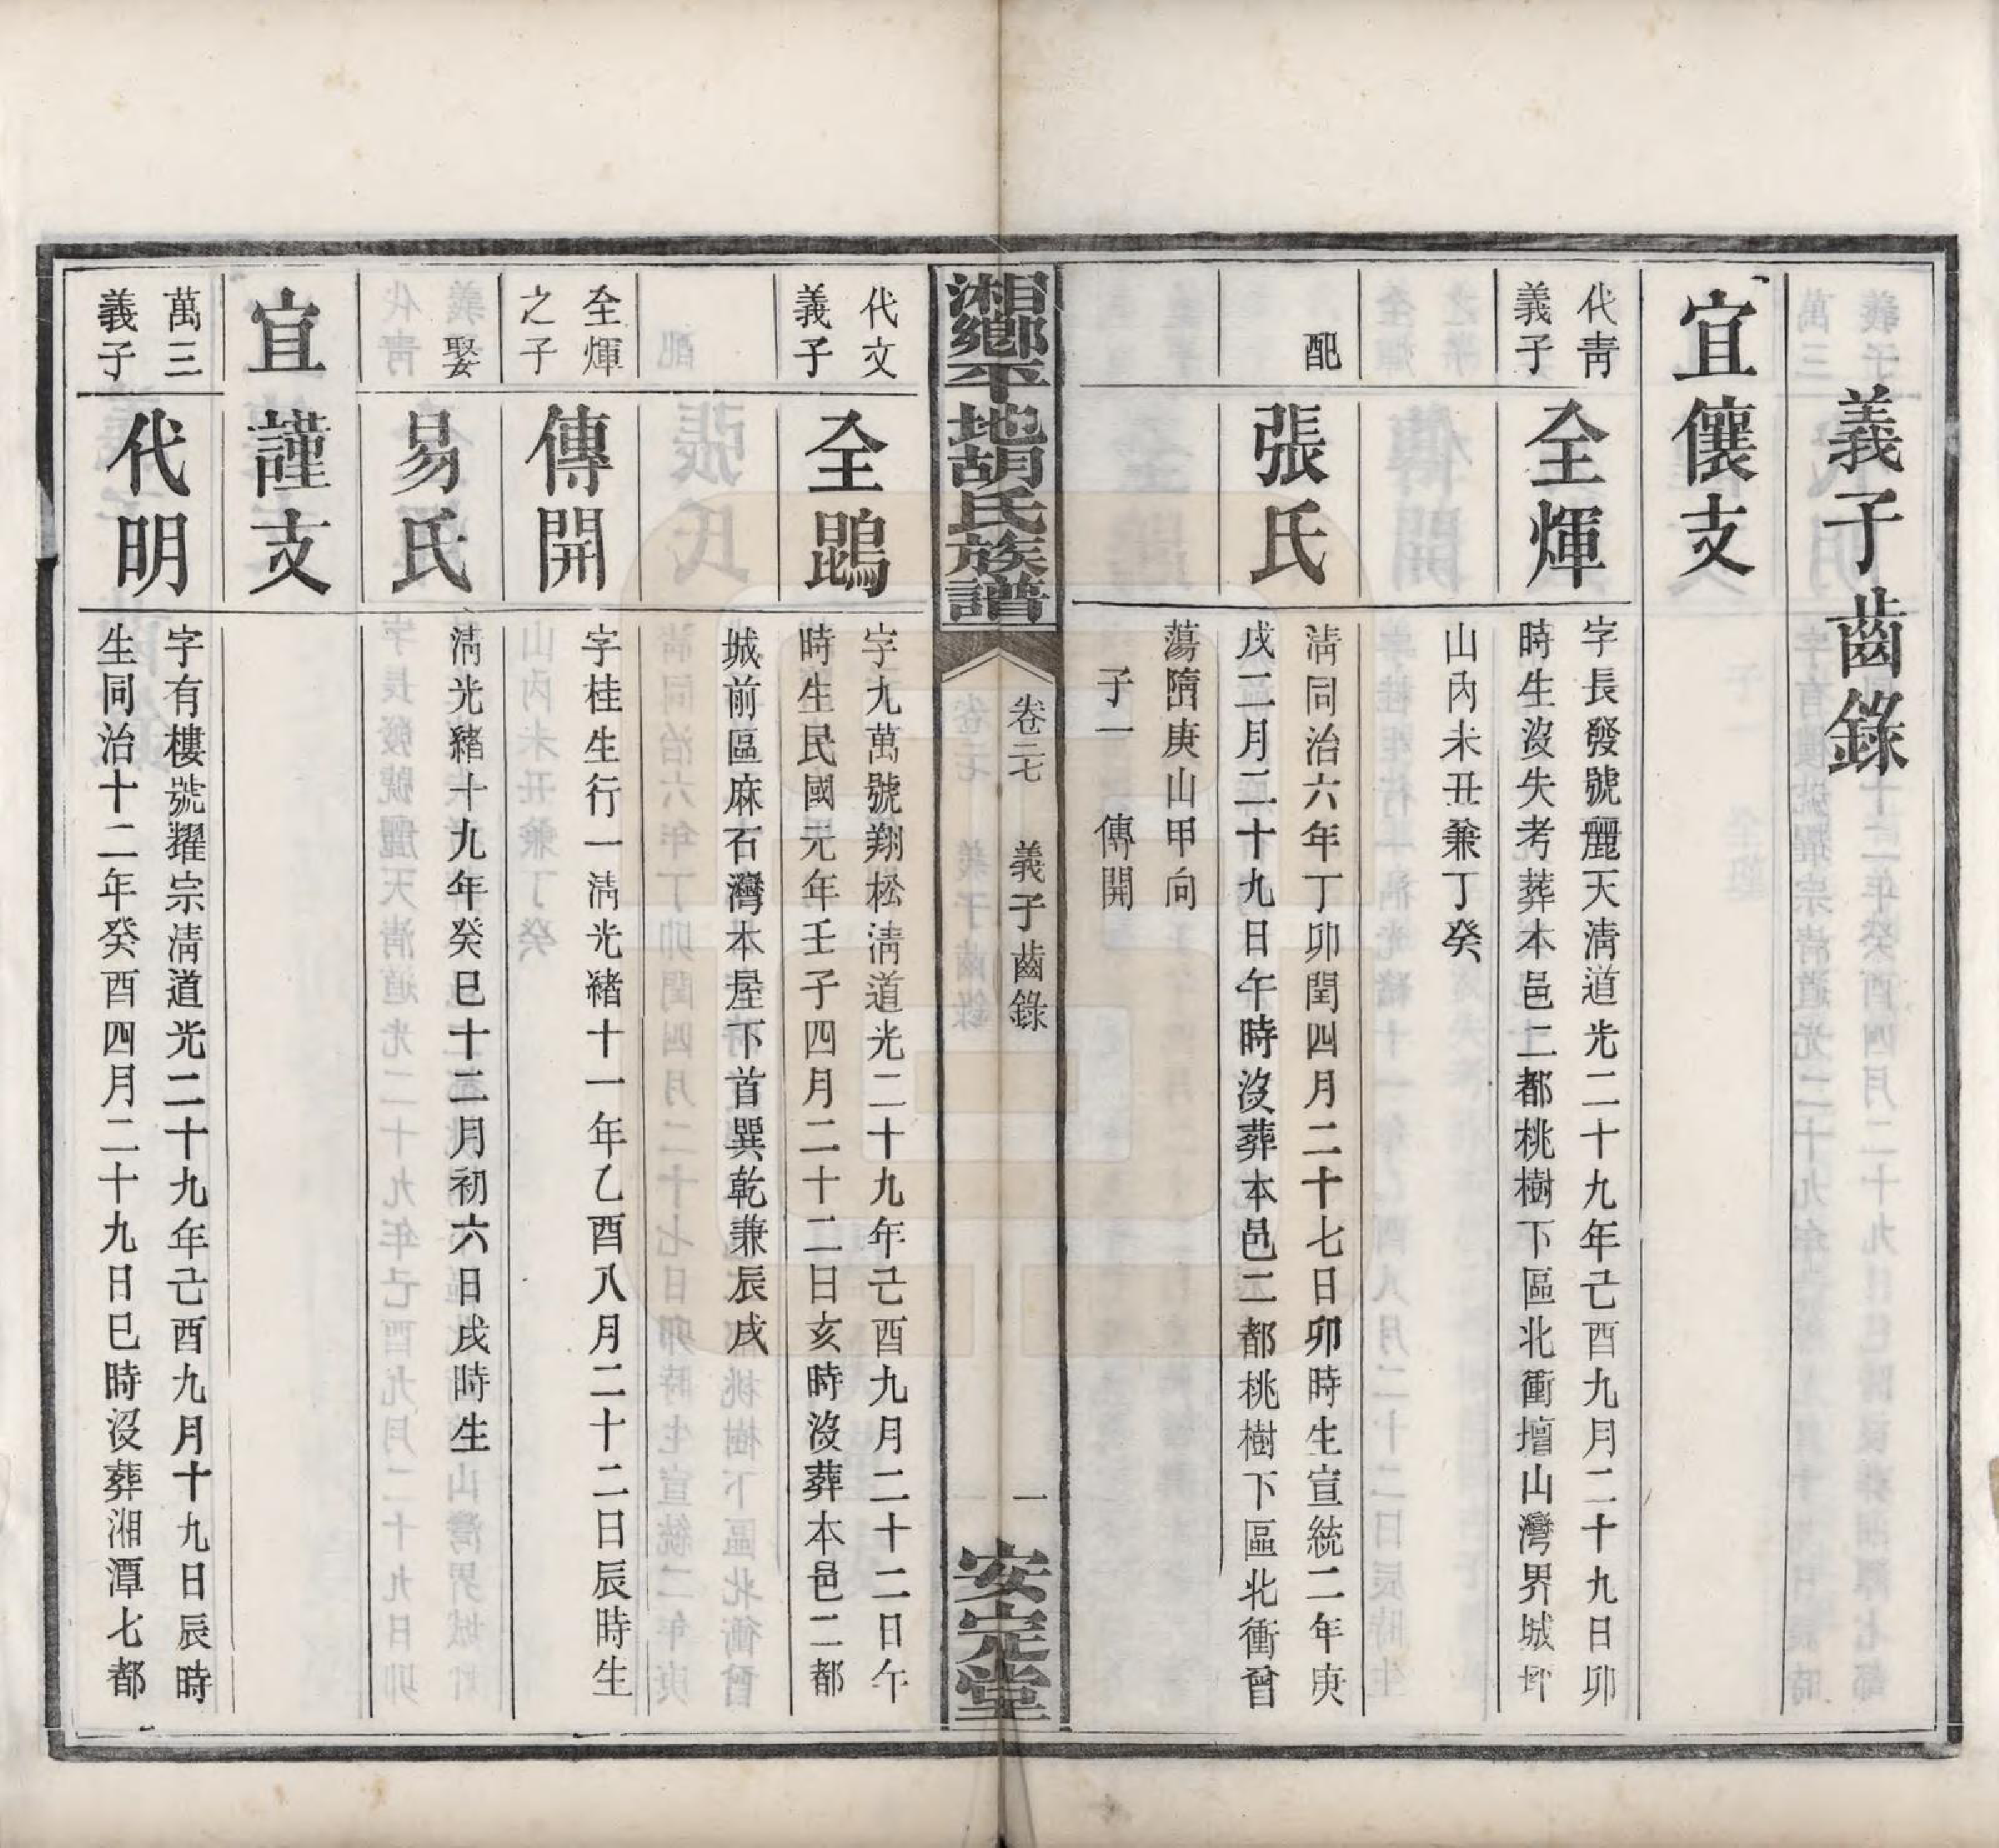 義子齒錄
宜儴支
代靑
義子
全煇
字長發號麗天淸道光二十九年己酉九月二十九日卯
時生沒失考葬本邑二都桃樹下區北衝壇山灣界城坪
山內未丑兼丁癸
配
張氏
淸同治六年丁卯閏四月二十七日卯時生宣統二年庚
戌二月二十九日午時沒葬本邑二都桃樹下區北衝曾
蕩墮庚山甲向
子一 傳開
湘鄉平地胡氏族譜
卷二七 義子齒錄
一
安定堂
代文
義子
全鵾
字九萬號翔松淸道光二十九年己酉九月二十二日午
時生民國元年壬子四月二十二日亥時沒葬本邑二都
城前區麻石灣本屋下首巽乾兼辰戌
全煇
之子
傳開
字桂生行一淸光緒十一年乙酉八月二十二日辰時生
娶
易氏
淸光緒十九年癸巳十二月初六日戌時生
宜謹支
萬三
義子
代明
字有樓號耀宗淸道光二十九年己酉九月十九日辰時
生同治十二年癸酉四月二十九日巳時沒葬湘潭七都